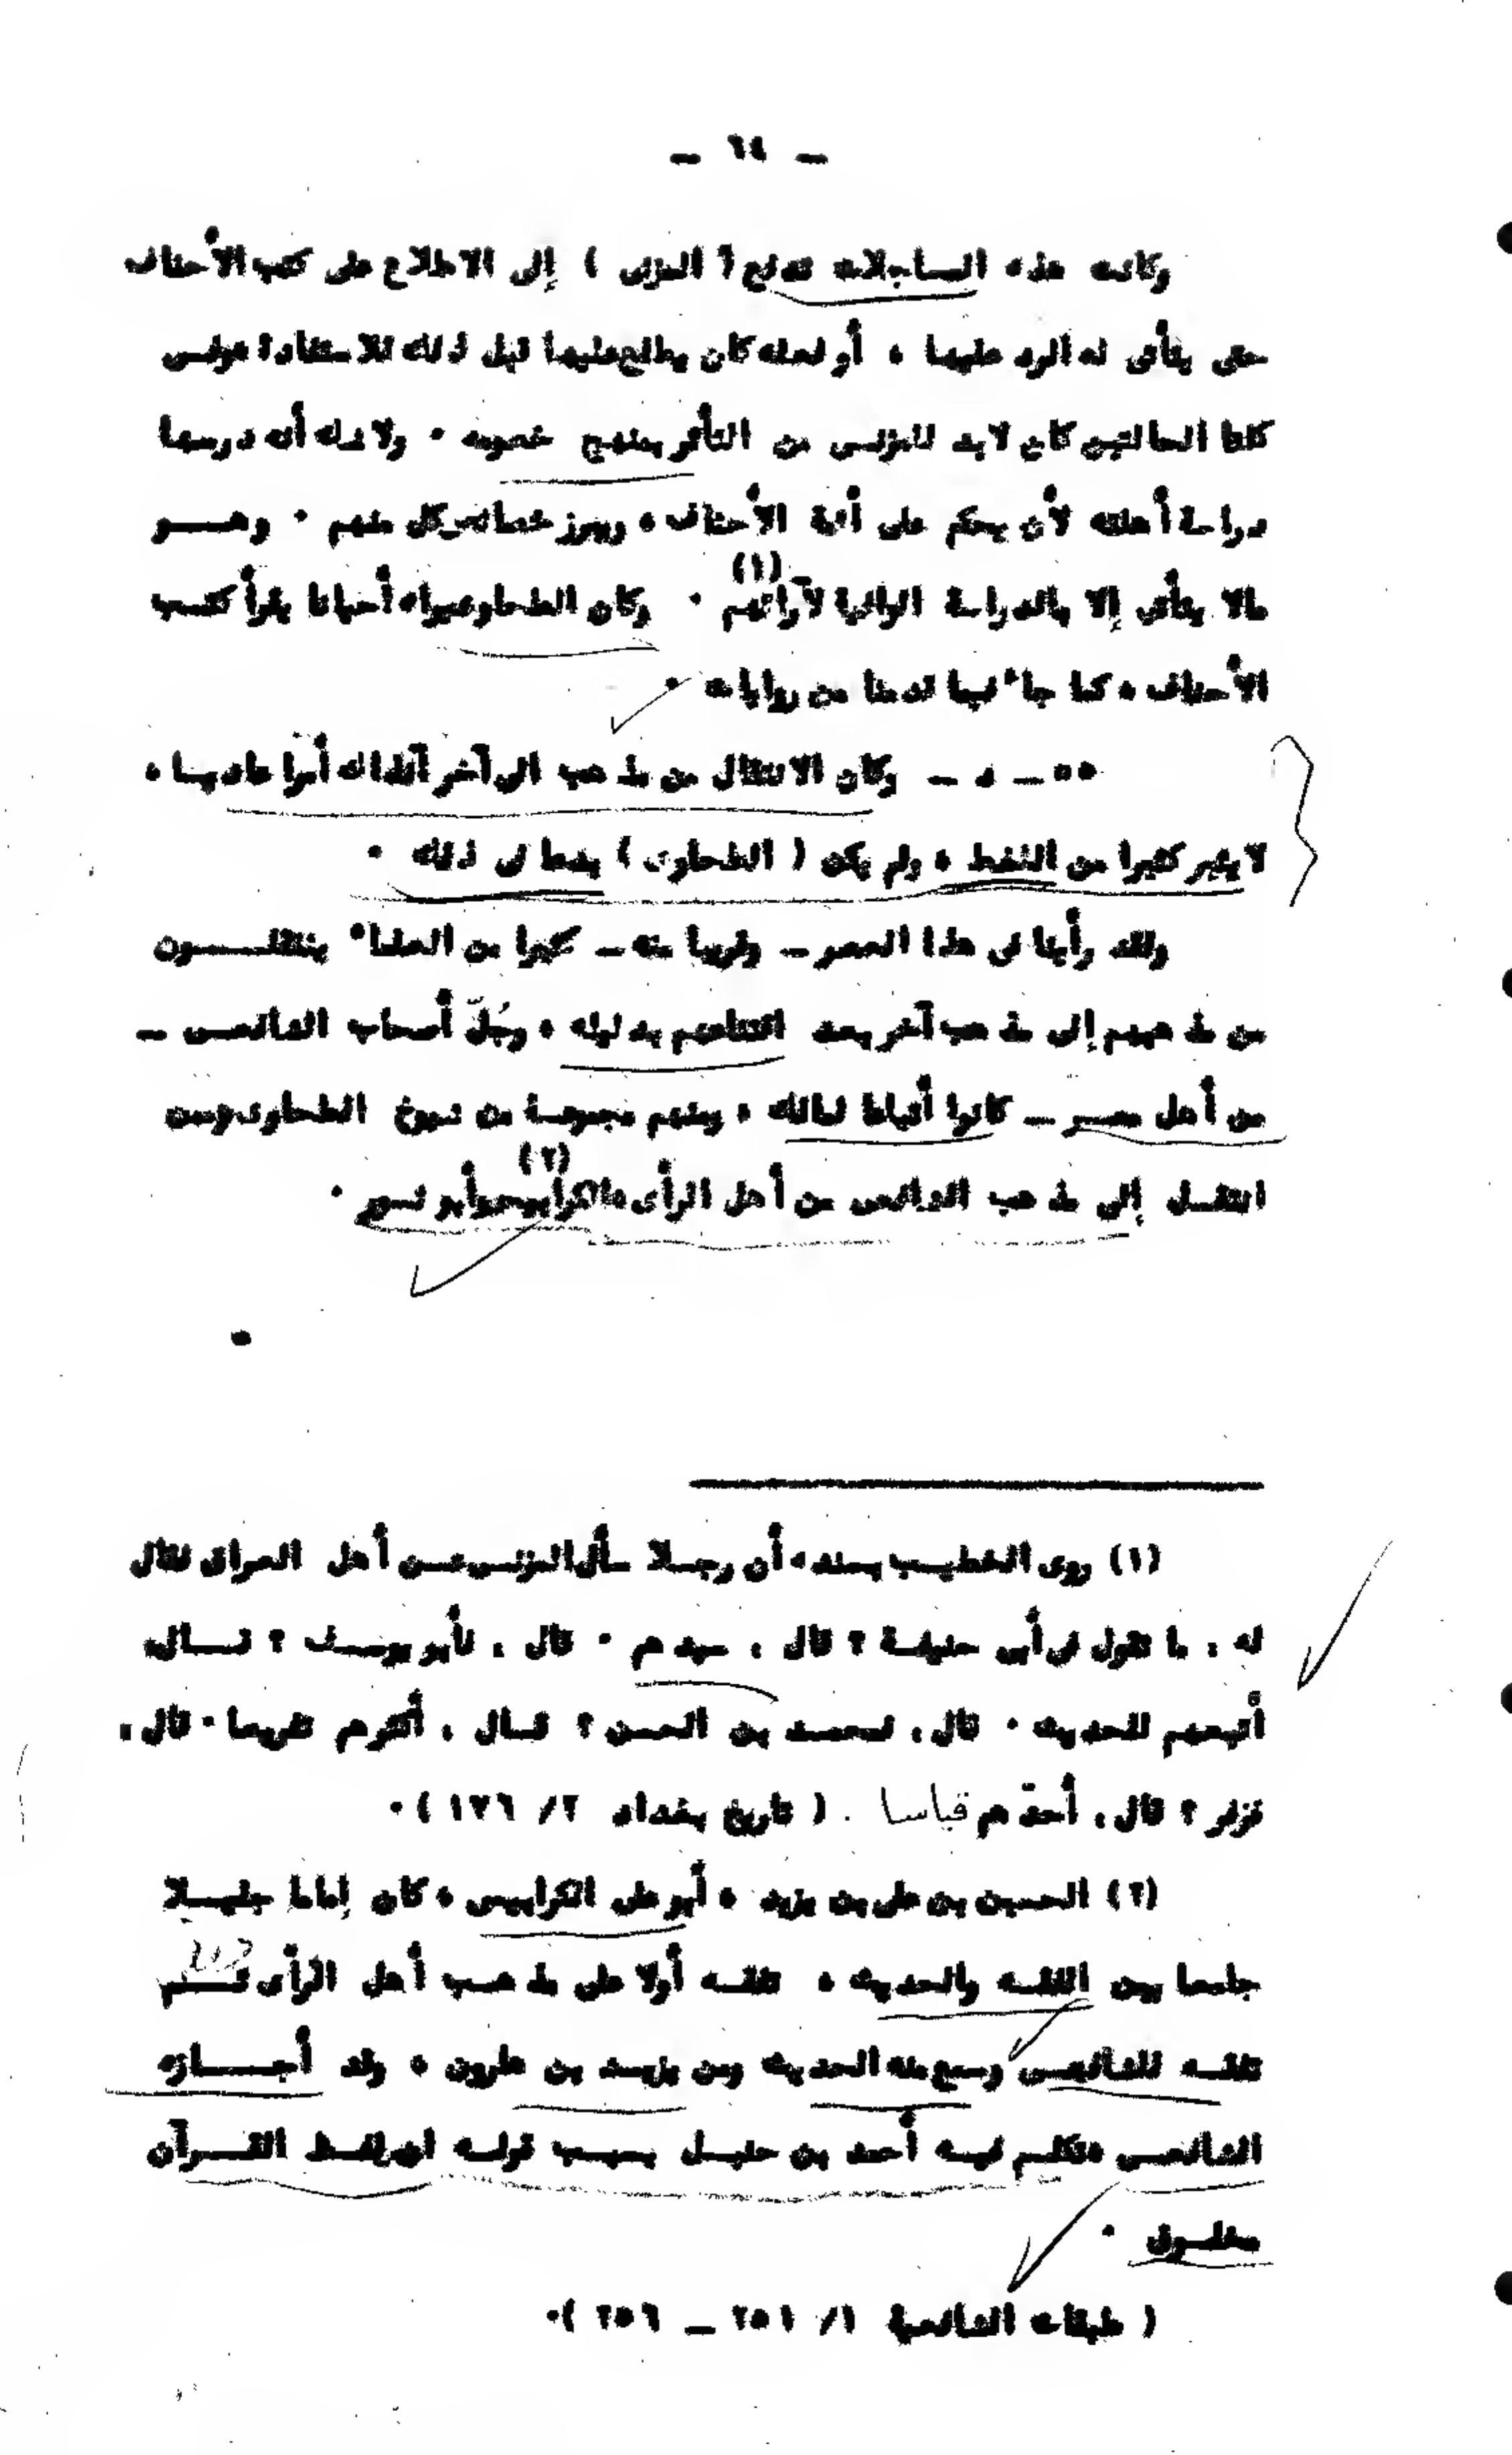 ـ ٦٤ ـ
وكانت هذه المساجلات تدفع ( المزنى ) إلى الاطلاع على كتب الأحناف
حتى يتأتى له الرد عليها ، أو لعله كان يطلع عليها قبل ذلك للاستفادة ، وفى
كلتا الحالتين كان لابد للمزنى من التأثر بمنهج خصومه . ولا شك أنه درسها
دراسة أهلته لأن يحكم على أئمة الأحناف ، ويبرز خصائص كل منهم . وهو
مالا يتأتى إلا بالدراسة الوافية لآرائهم (١) . وكان الطحاوى يراه أحيانا يقرأ كتب
الأحناف ، كما جاء فيما قدمنا من روايات .
٥٥ ـ د ـ وكان الانتقال من مذهب الى آخر آنذاك أمرا عاديا ،
لا يثير كثيرا من اللغط ، ولم يكن ( الطحاوى ) بدعا فى ذلك .
ولقد رأينا فى هذا العصر ـ وقريبا منه ـ كثيرا من العلماء ينتقلون
من مذهبهم إلى مذهب آخر بعد اقتناعهم بدليله ، وجُلّ أصحاب الشافعى ـ
من أهل مصر ـ كانوا أتباعا لمالك ، ومنهم مجموعة من شيوخ الطحاوى وممن
انتقل إلى مذهب الشافعى من أهل الرأى ، الكرابيسى (٢) وأبو ثور .
(١) روى الخطيب بسنده أن رجلا سأل المزنى عن أهل العراق فقال
له : ما تقول فى أبى حنيفة ؟ قال : سيدهم . قال : فأبو يوسف ؟ قال :
أتبعهم للحديث . قال : فمحمد بن الحسن ؟ قال : أكثرهم تفريعا . قال :
فزفر ؟ قال : أحدّهم قياسا . ( تاريخ بغداد ٢/ ١٧٦ ) .
(٢) الحسين بن على بن يزيد ، أبو على الكرابيسى ، كان إماما جليلا
جامعا بين الفقه والحديث ، تفقه أولا على مذهب أهل الرأى ثم
تفقه للشافعى وسمع منه الحديث ومن يزيد بن هارون ، وقد أجازه
الشافعى ، وتكلم فيه أحمد بن حنبل بسبب قوله ان لفظ القرآن
مخلوق .
( طبقات الشافعية ١/ ٢٥١ ـ ٢٥٦ ) .